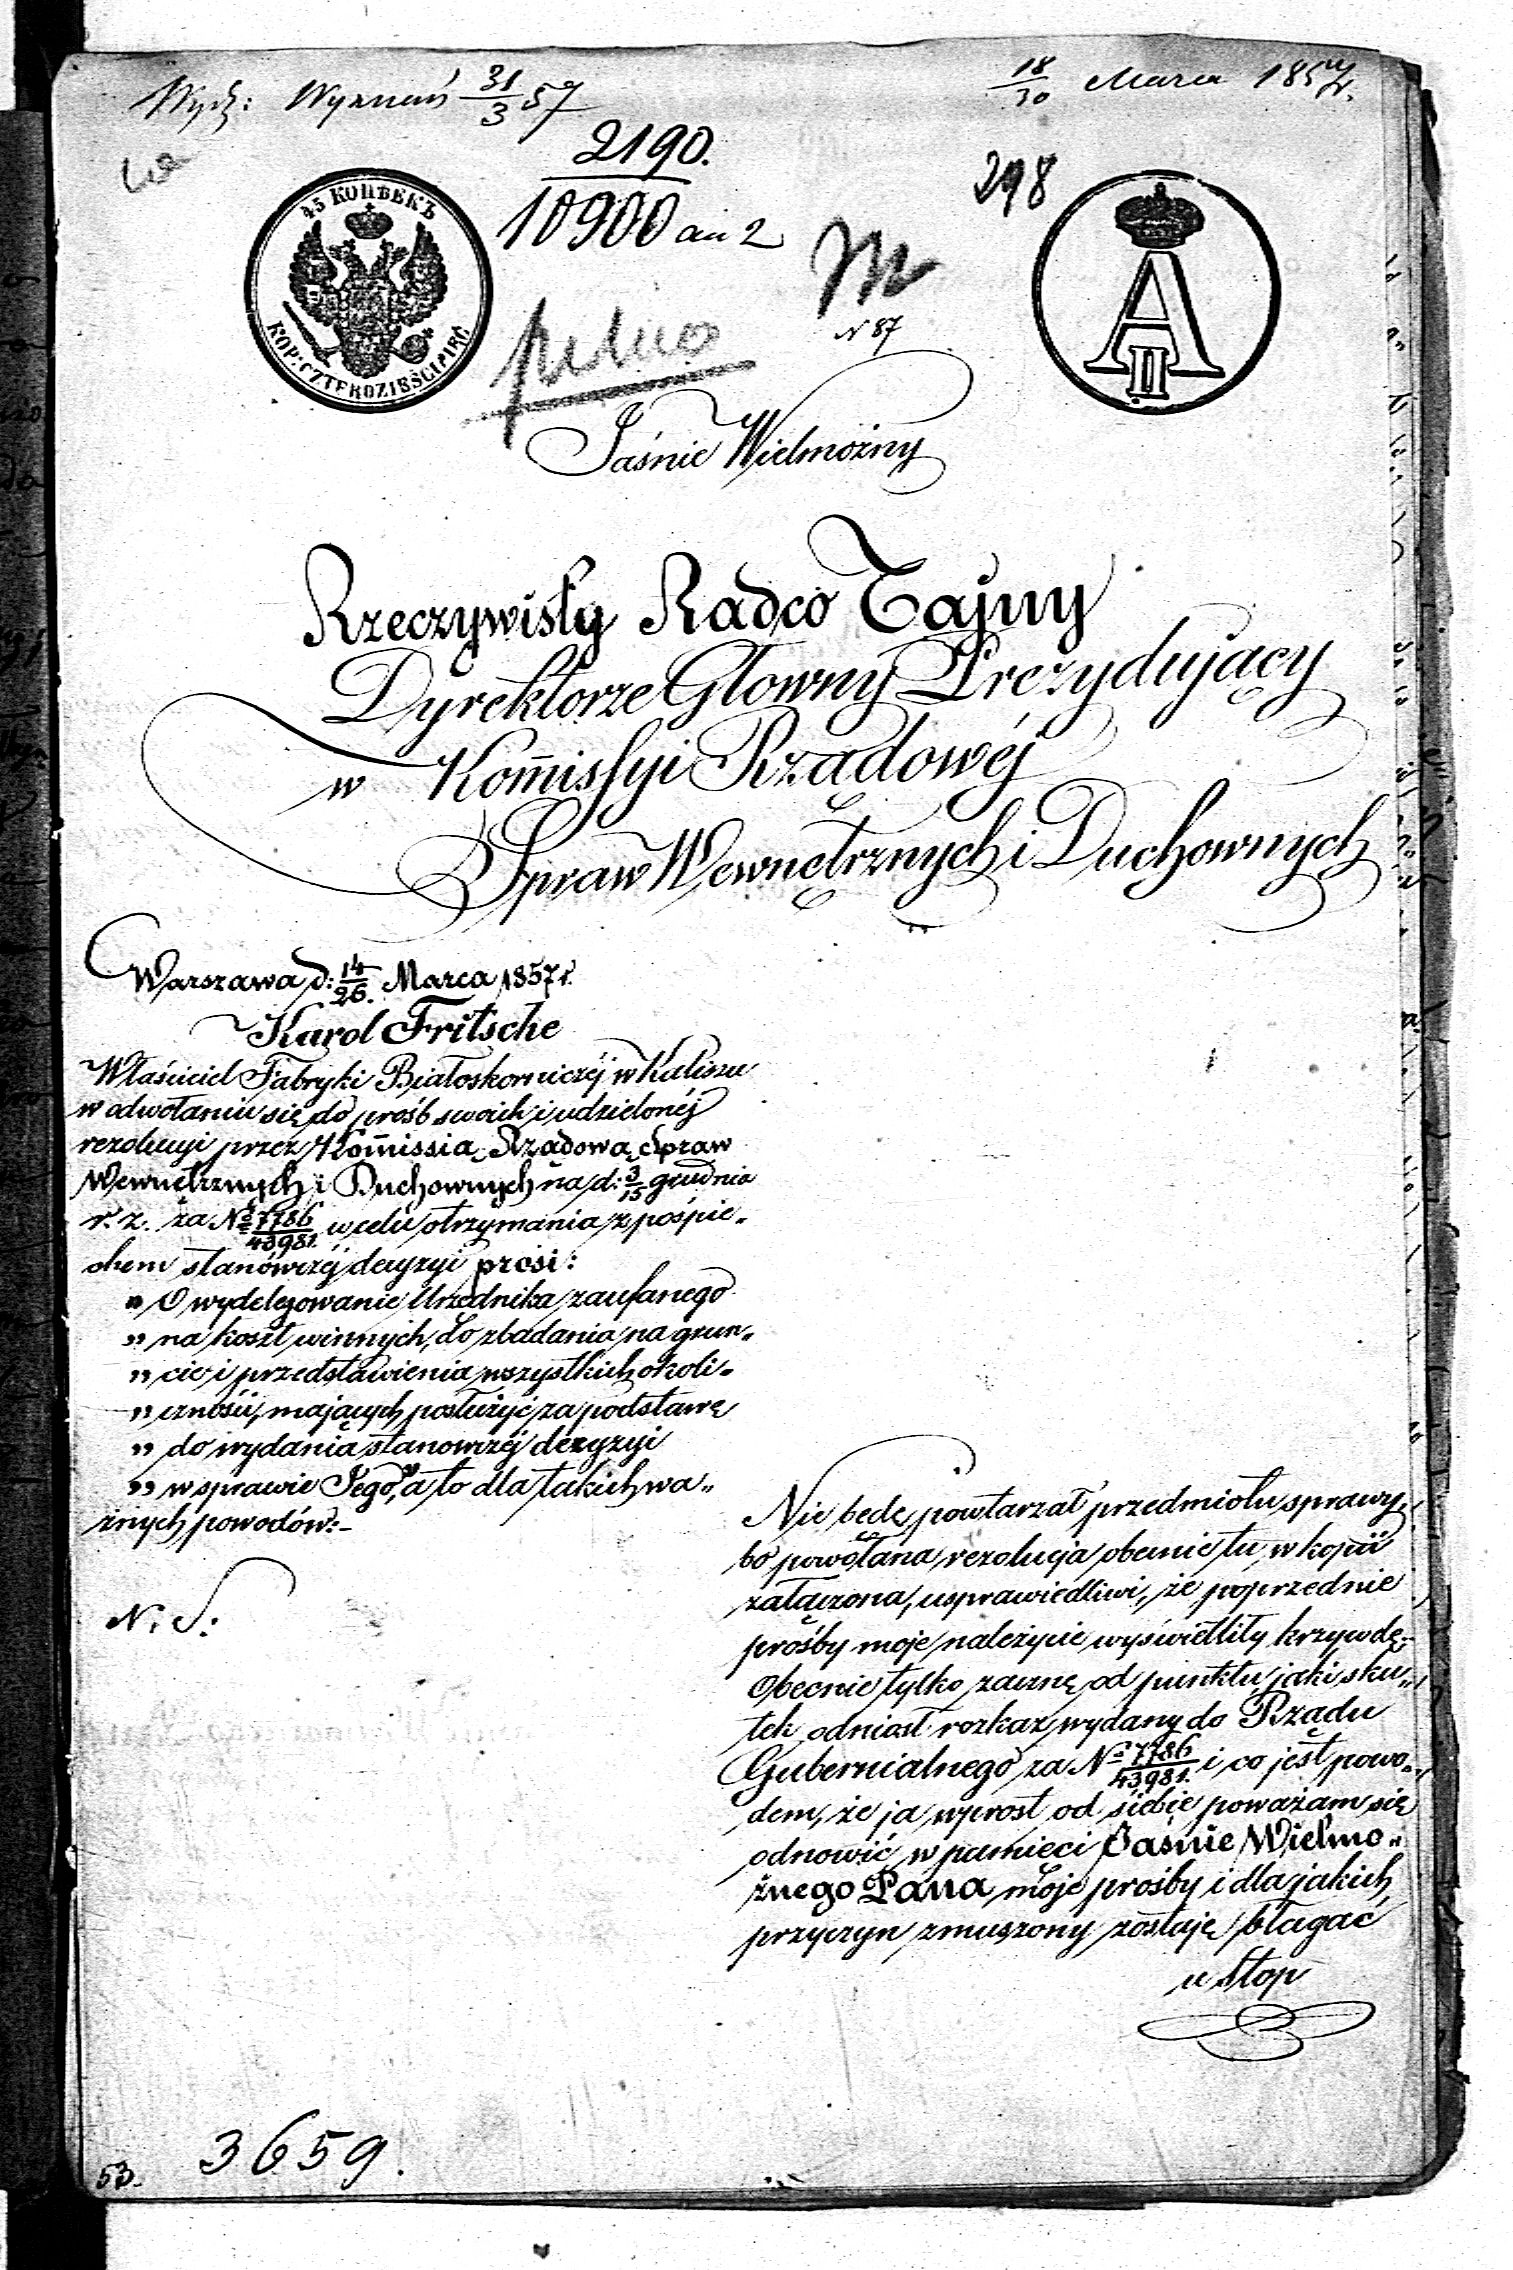 Wydz: Wyznań 31/3 57
18/30 Marca 1857 r.
2190.
10900 an 2
298
45 КОПѢЕКЪ
KOP: CZTERDZIEŚCI PIĘĆ
A II
pilno
N 87
Jaśnie Wielmożny
Rzeczywisty Radco Tajny
Dyrektorze Głowny Prezydujący
w Kom̄issyi Rządowéj
Spraw Wewnętrznych i Duchownych
Warszawa d: 14/26. Marca 1857 r.
Karol Fritsche
Właściciel Fabryki Białoskorniczéj w Kaliszu
w odwołaniu się do prośb swoich i udzielonéj
rezolucyi przez Kom̄issią Rządową Spraw
Wewnętrznych i Duchownych na d: 3/15 grudnia
r. z. za No 7786/43981. w celu otrzymania z pośpie„
chem stanowczéj decyzyi prosi:
„ O wydelegowanie Urzędnika zaufanego
„ na koszt winnych, do zbadania na grun„
„ cie i przedstawienia wszystkich okoli„
„ czności, mających posłużyć za podstawę
„ do wydania stanowczéj decyzyi
„ w sprawie Jego," a to dla takich wa„
żnych powodów:–
N. S:
Nie będę powtarzał przedmiotu sprawy,
bo powołana rezolucja obecnie tu w kopii
załączona, usprawiedliwi, że poprzednie
prośby moje należycie wyświetliły krzywdę.–
Obecnie tylko zacznę od punktu, jaki sku„
tek odniosł rozkaz wydany do Rządu
Gubernialnego za No 7786/43981. i co jest powo„
dem, że ja wprost od siebie poważam się
odnowić w pamięci Jaśnie Wielmo„
żnego Pana moje prośby i dla jakich
przyczyn zmuszony zostaję błagać
u stop
3659.
53.